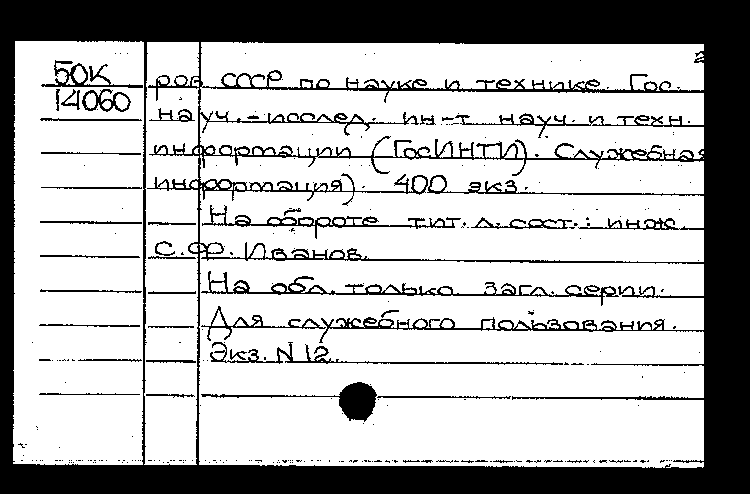 2
50К ров СССР по науке и технике. Гос.
14060 науч.-исслед. ин-т науч. и техн.
информации (ГосИНТИ). Служебная
информация). 400 экз.
На обороте тит. л. сост.: инж.
С.Ф. Иванов.
На обл. только загл. серии.
Для служебного пользования.
Экз. N 12.